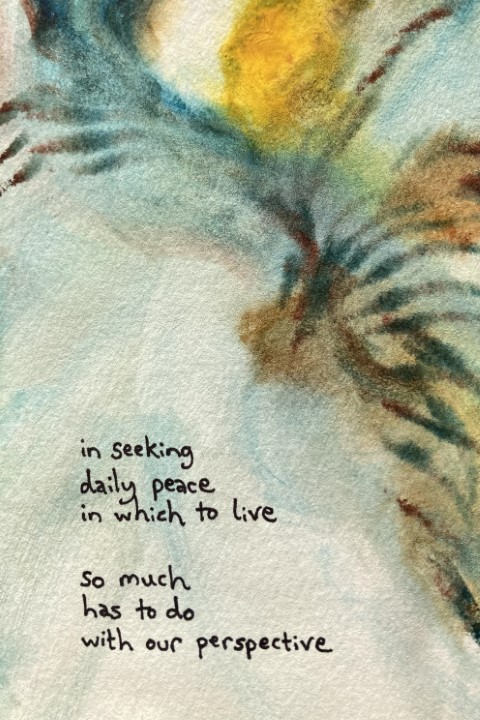 in seeking
daily peace
in which to live
so much
has to do
with our perspective